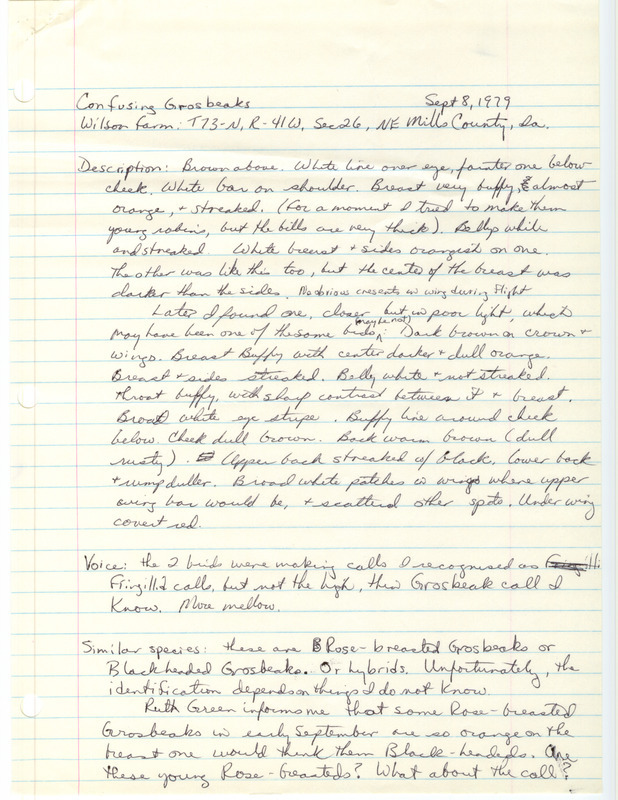 Confusing Grosbeaks Sept 8, 1979
Wilson Farm: T73-N, R-41W, Sec 26, NE Mills County, Ia.
Description: Brown above. White line over eye, fainter one below
cheek. White bar on shoulder. Breast very buffy, almost
orange, + streaked. (For a moment I tried to make them
young robins, but the bills are very thick). Belly white
and streaked White breast + sides orangish on one.
The other was like this too, but the center of the breast was
darker than the sides. No obvious cresents in wing during flight
Later I found one, closer but in poor light, which
may have been one of the same birds (maybe not): Dark brown on crown +
wings. Breast Buffy with center darker + dull orange.
Breast + sides streaked. Belly white + not streaked.
throat buffy, with sharp contrast between it + breast.
Broad white eye stripe. Buffy line around cheek
below. Cheek dull brown. Back warm brown (dull
rusty). Upper back streaked w/ black, lower back
+ rump duller. Broad white patches in wings where upper
wing bar would be, + scatterd other spots. Under wing
covert red.
Voice: the 2 birds were making calls I recognised as
Fringillid calls, but not the high, thin Grosbeak call I
Know. More mellow.
Similar species: these are Rose-breasted Grosbeaks or
Blackheaded Grosbeaks. Or hybrids. Unfortunately, the
identification depends on things I do not know.
Ruth Green informs me that some Rose-breasted
Grosbeaks in early September are so orange on the
breast one would think them Black-headeds. Are
these young Rose-breasteds? What about the call?